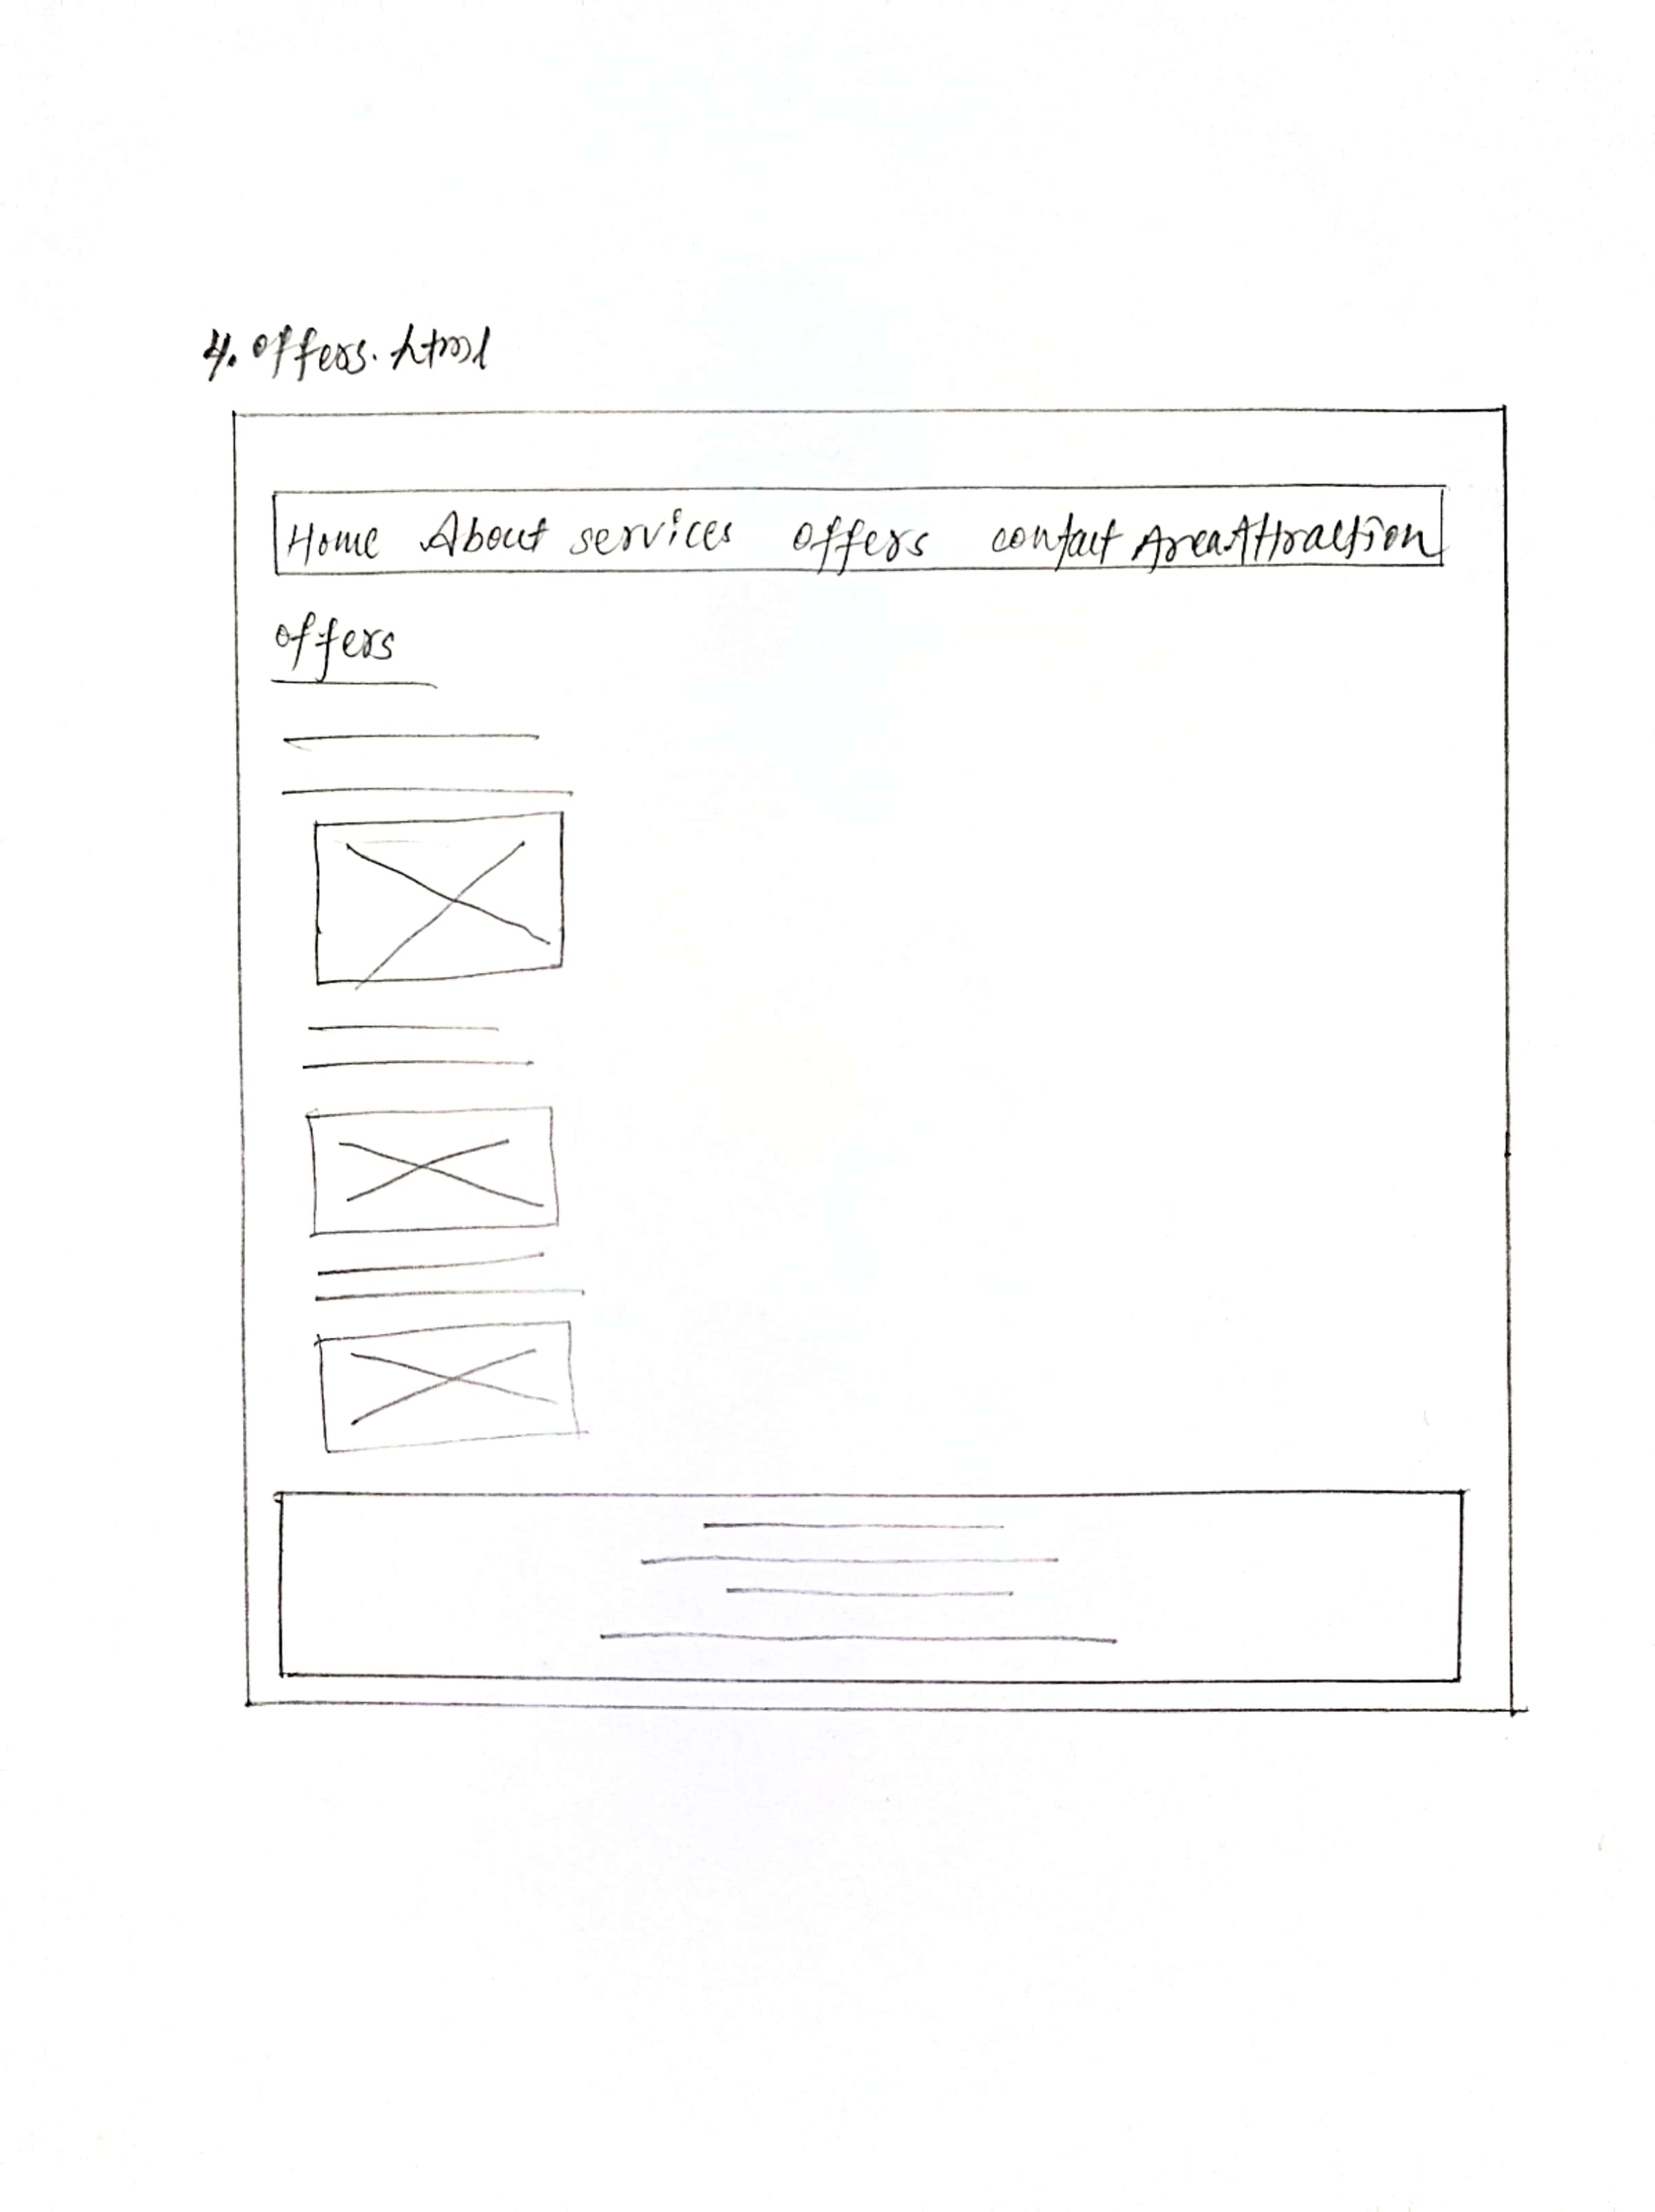 4. offers.html
Home About services offers contact AreaAttraction
offers